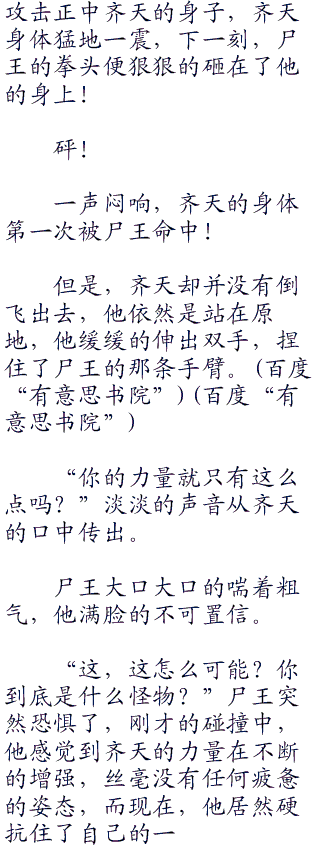 攻击正中齐天的身子，齐天
身体猛地一震，下一刻，尸
王的拳头便狠狠的砸在了他
的身上！
砰！
一声闷响，齐天的身体
第一次被尸王命中！
但是，齐天却并没有倒
飞出去，他依然是站在原
地，他缓缓的伸出双手，捏
住了尸王的那条手臂。(百度
“有意思书院”)(百度“有
意思书院”)
“你的力量就只有这么
点吗？”淡淡的声音从齐天
的口中传出。
尸王大口大口的喘着粗
气，他满脸的不可置信。
“这，这怎么可能？你
到底是什么怪物？”尸王突
然恐惧了，刚才的碰撞中，
他感觉到齐天的力量在不断
的增强，丝毫没有任何疲惫
的姿态，而现在，他居然硬
抗住了自己的一